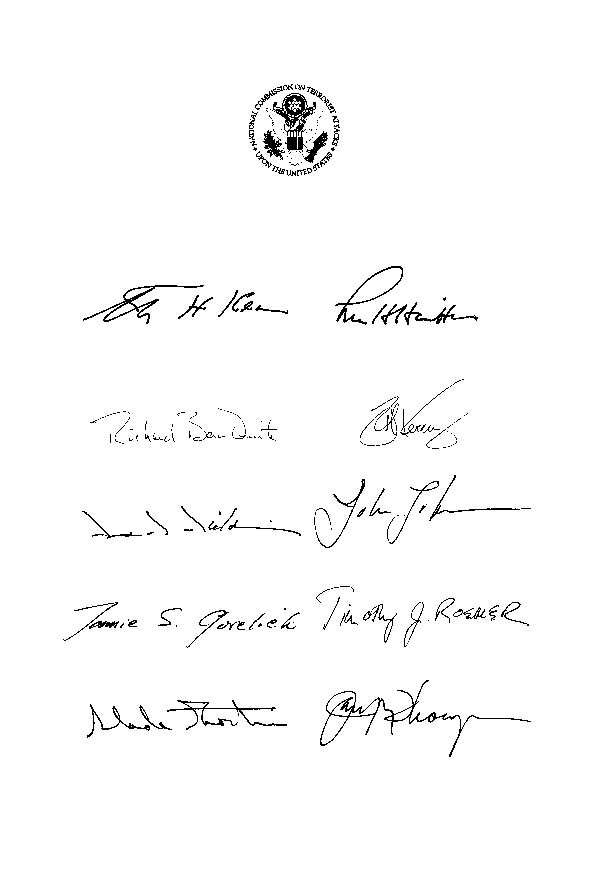 NATIONAL COMMISSION ON TERRORIST ATTACKS
UPON THE UNITED STATES
H Kean Lee H Hamilton
Richard Ben-Veniste Kerrey
Fielding John Lehman
Jamie S. Gorelick Timothy J. ROEMER
Slade Gorton James R Thompson